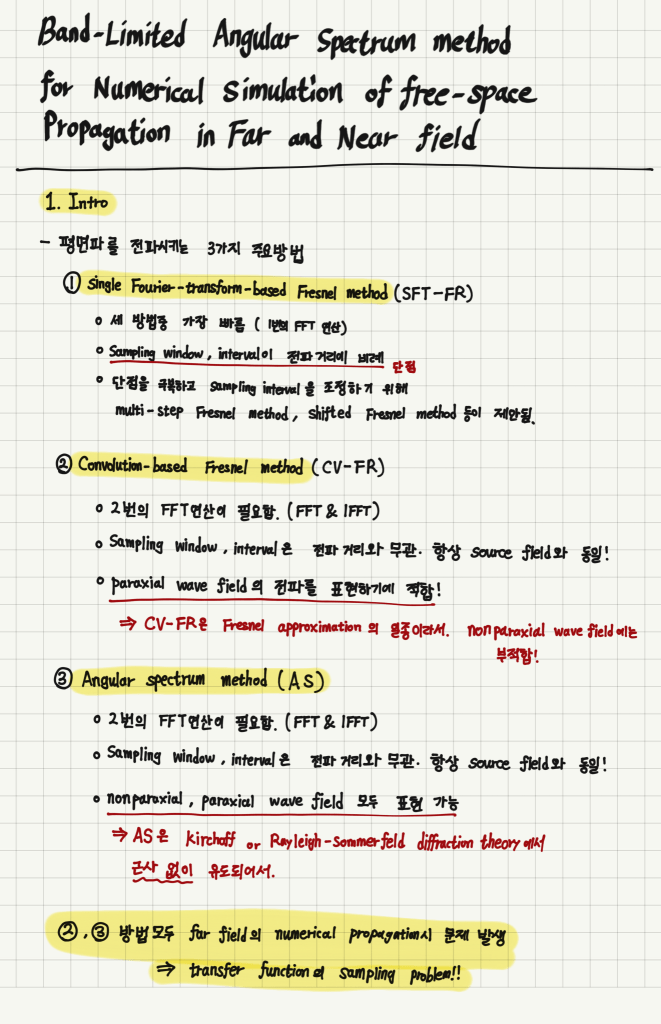 Band-Limited Angular Spectrum method
for Numerical Simulation of free-space
Propagation in Far and Near field
1. Intro
- 평면파를 전파시키는 3가지 주요방법
① Single Fourier-transform-based Fresnel method (SFT-FR)
o 세 방법중 가장 빠름 (1번의 FFT 연산)
o Sampling window, interval이 전파거리에 비례 단점
o 단점을 극복하고 sampling interval을 조정하기 위해
multi-step Fresnel method, shifted Fresnel method 등이 제안됨.
② Convolution-based Fresnel method (CV-FR)
o 2번의 FFT연산이 필요함. (FFT & IFFT)
o Sampling window, interval은 전파 거리와 무관. 항상 source field와 동일!
o paraxial wave field의 전파를 표현하기에 적합!
⇒ CV-FR은 Fresnel approximation의 일종이라서. nonparaxial wave field에는
부적합!
③ Angular spectrum method (AS)
o 2번의 FFT연산이 필요함. (FFT & IFFT)
o Sampling window, interval은 전파 거리와 무관. 항상 source field와 동일!
o nonparaxial, paraxial wave field 모두 표현 가능
⇒ AS은 kirchoff or Rayleigh-Sommerfeld diffraction theory에서
근사 없이 유도되어서.
②, ③ 방법모두 far field의 numerical propagation시 문제 발생
⇒ transfer function의 sampling problem!!